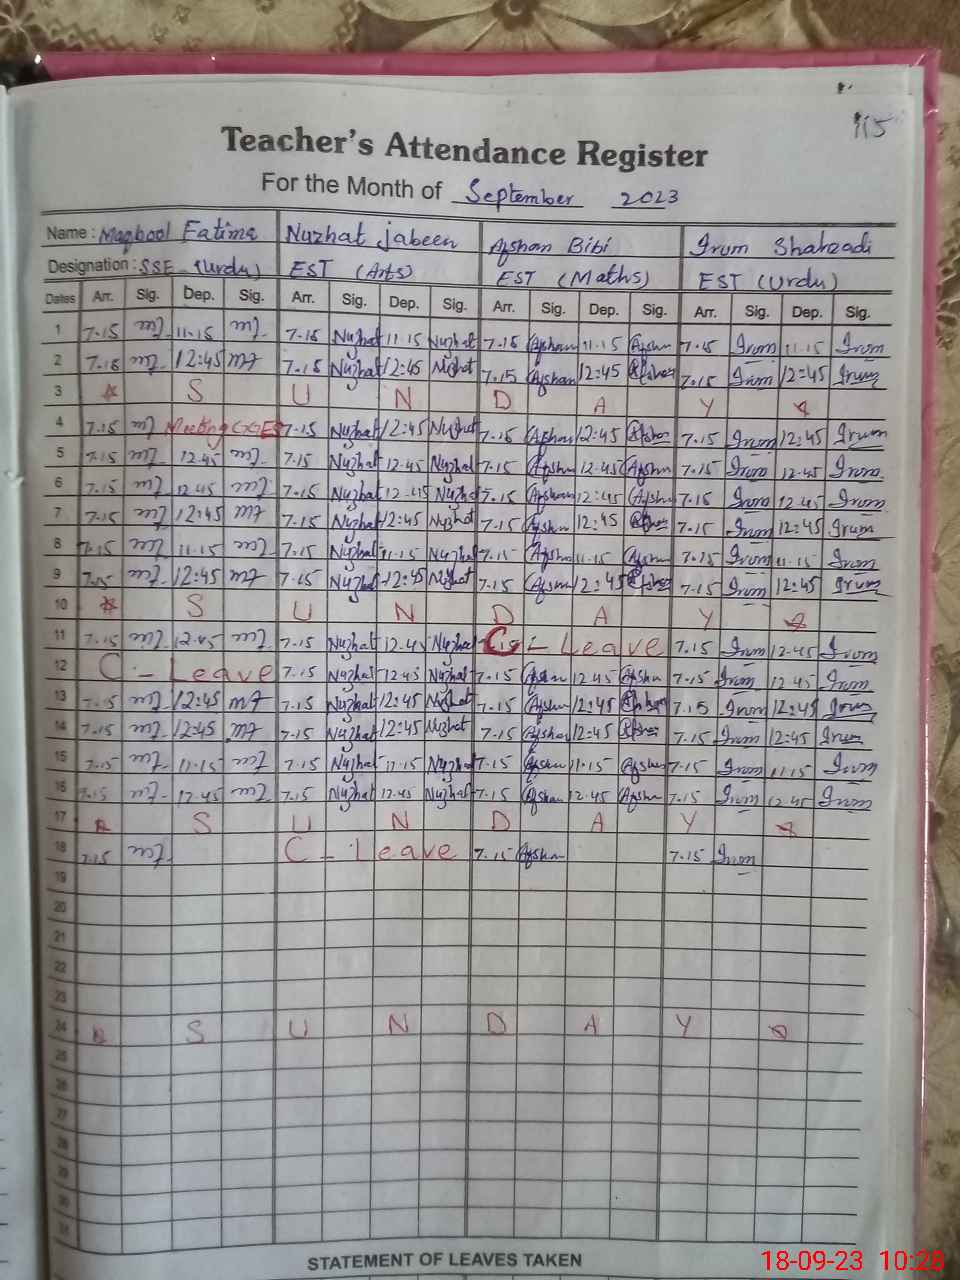 115
Teacher's Attendance Register
For the Month of September 2023
Name : Maqbool Fatima Nuzhat Jabeen Afshan Bibi Irum Shahzadi
Designation : SSE (Urdu) EST (Arts) EST (Maths) EST (Urdu)
Dates Arr. Sig. Dep. Sig. Arr. Sig. Dep. Sig. Arr. Sig. Dep. Sig. Arr. Sig. Dep. Sig.
1 7.15 11.15 7.15 Nuzhat 11.15 Nuzhat 7.15 Afshan 11.15 Afshan 7.15 Irum 11.15 Irum
2 7.15 12:45 7.15 Nuzhat 12:45 Nuzhat 7.15 Afshan 12:45 Afshan 7.15 Irum 12:45 Irum
3 S U N D A Y
4 7.15 Meeting 7.15 Nuzhat 12:45 Nuzhat 7.15 Afshan 12:45 Afshan 7.15 Irum 12:45 Irum
5 7.15 12.45 7.15 Nuzhat 12.45 Nuzhat 7.15 Afshan 12.45 Afshan 7.15 Irum 12.45 Irum
6 7.15 12.45 7.15 Nuzhat 12.45 Nuzhat 7.15 Afshan 12:45 Afshan 7.15 Irum 12.45 Irum
7 7.15 12:45 7.15 Nuzhat 12:45 Nuzhat 7.15 Afshan 12:45 Afshan 7.15 Irum 12:45 Irum
8 7.15 11.15 7.15 Nuzhat 11.15 Nuzhat 7.15 Afshan 11.15 Afshan 7.15 Irum 11.15 Irum
9 7.15 12:45 7.15 Nuzhat 12:45 Nuzhat 7.15 Afshan 12:45 Afshan 7.15 Irum 12:45 Irum
10 S U N D A Y
11 7.15 12.45 7.15 Nuzhat 12.45 Nuzhat C - Leave 7.15 Irum 12.45 Irum
12 C - Leave 7.15 Nuzhat 12.45 Nuzhat 7.15 Afshan 12.45 Afshan 7.15 Irum 12.45 Irum
13 7.15 12:45 7.15 Nuzhat 12:45 Nuzhat 7.15 Afshan 12:45 Afshan 7.15 Irum 12:45 Irum
14 7.15 12:45 7.15 Nuzhat 12:45 Nuzhat 7.15 Afshan 12:45 Afshan 7.15 Irum 12:45 Irum
15 7.15 11.15 7.15 Nuzhat 11.15 Nuzhat 7.15 Afshan 11.15 Afshan 7.15 Irum 11.15 Irum
16 7.15 12.45 7.15 Nuzhat 12.45 Nuzhat 7.15 Afshan 12.45 Afshan 7.15 Irum 12.45 Irum
17 S U N D A Y
18 7.15 C - Leave 7.15 Afshan 7.15 Irum
19
20
21
22
23
24 S U N D A Y
25
26
27
28
29
30
31
STATEMENT OF LEAVES TAKEN
18-09-23 10:28